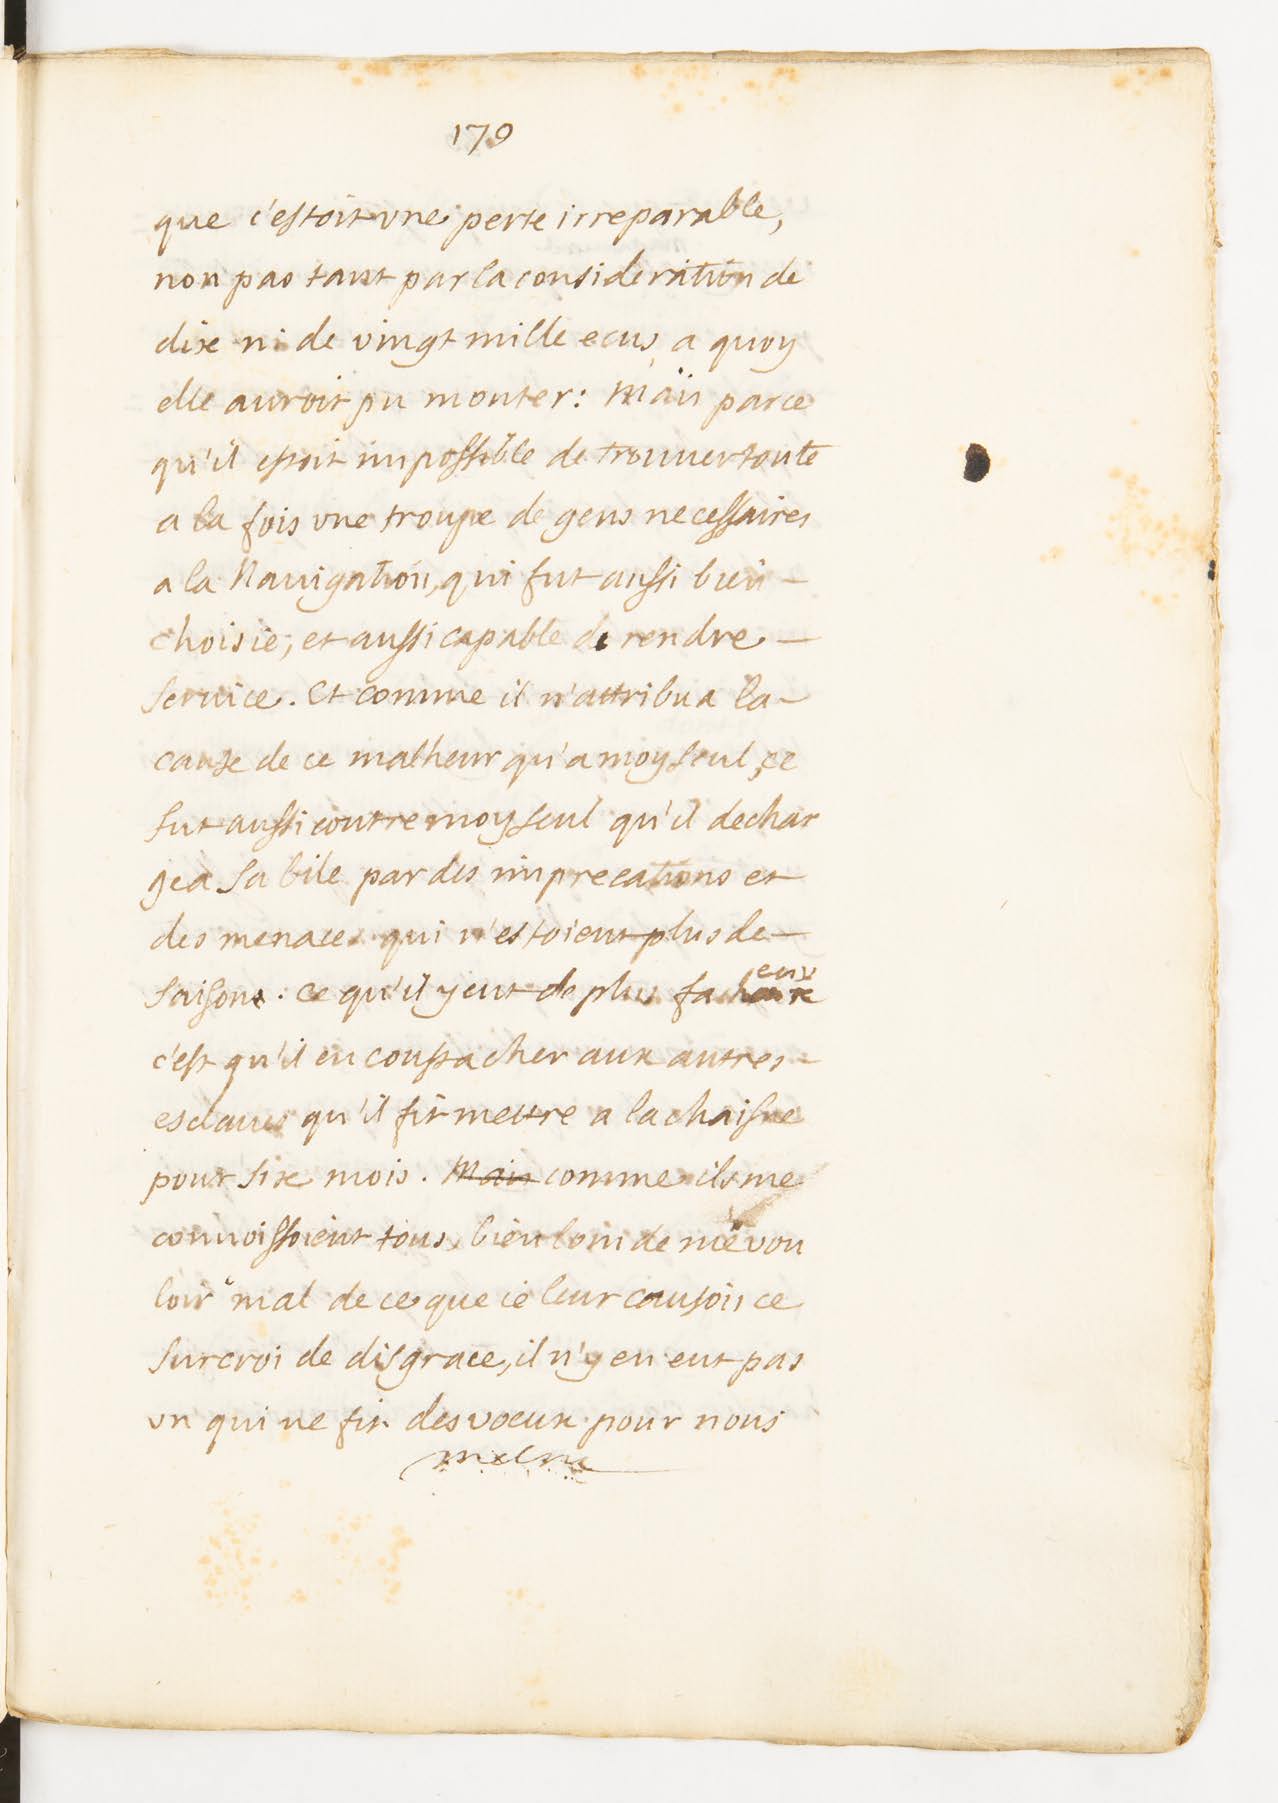 179
que c'estoit vne perte irreparable,
non pas tant par la consideration de
dixe ni de vingt mille ecus, a quoy
elle auroit pu monter: Mais parce
qu'il estoit impossible de trouuer toute
a la fois vne troupe de gens necessaires
a la Nauigation, qui fut aussi bien –
choisie; et aussi capable de rendre –
seruice. Et comme il n'attribua la –
cause de ce malheur qu'a moy seul, ce
fut aussi contre moy seul qu'il dechar
gea sa bile par des imprecations et
des menaces qui n'estoient plus de –
saison. Ce qu'il y eut de plus facheux
c'est qu'il en cousta cher aux autres –
esclaues qu'il fit mettre a la chaisne
pour sixe mois. Mais comme ils me
connoissoient tous, bien loin de me vou
loir mal de ce que ie leur causois ce
surcroi de disgrace, il n'y en eut pas
vn qui ne fit des voeux pour nous